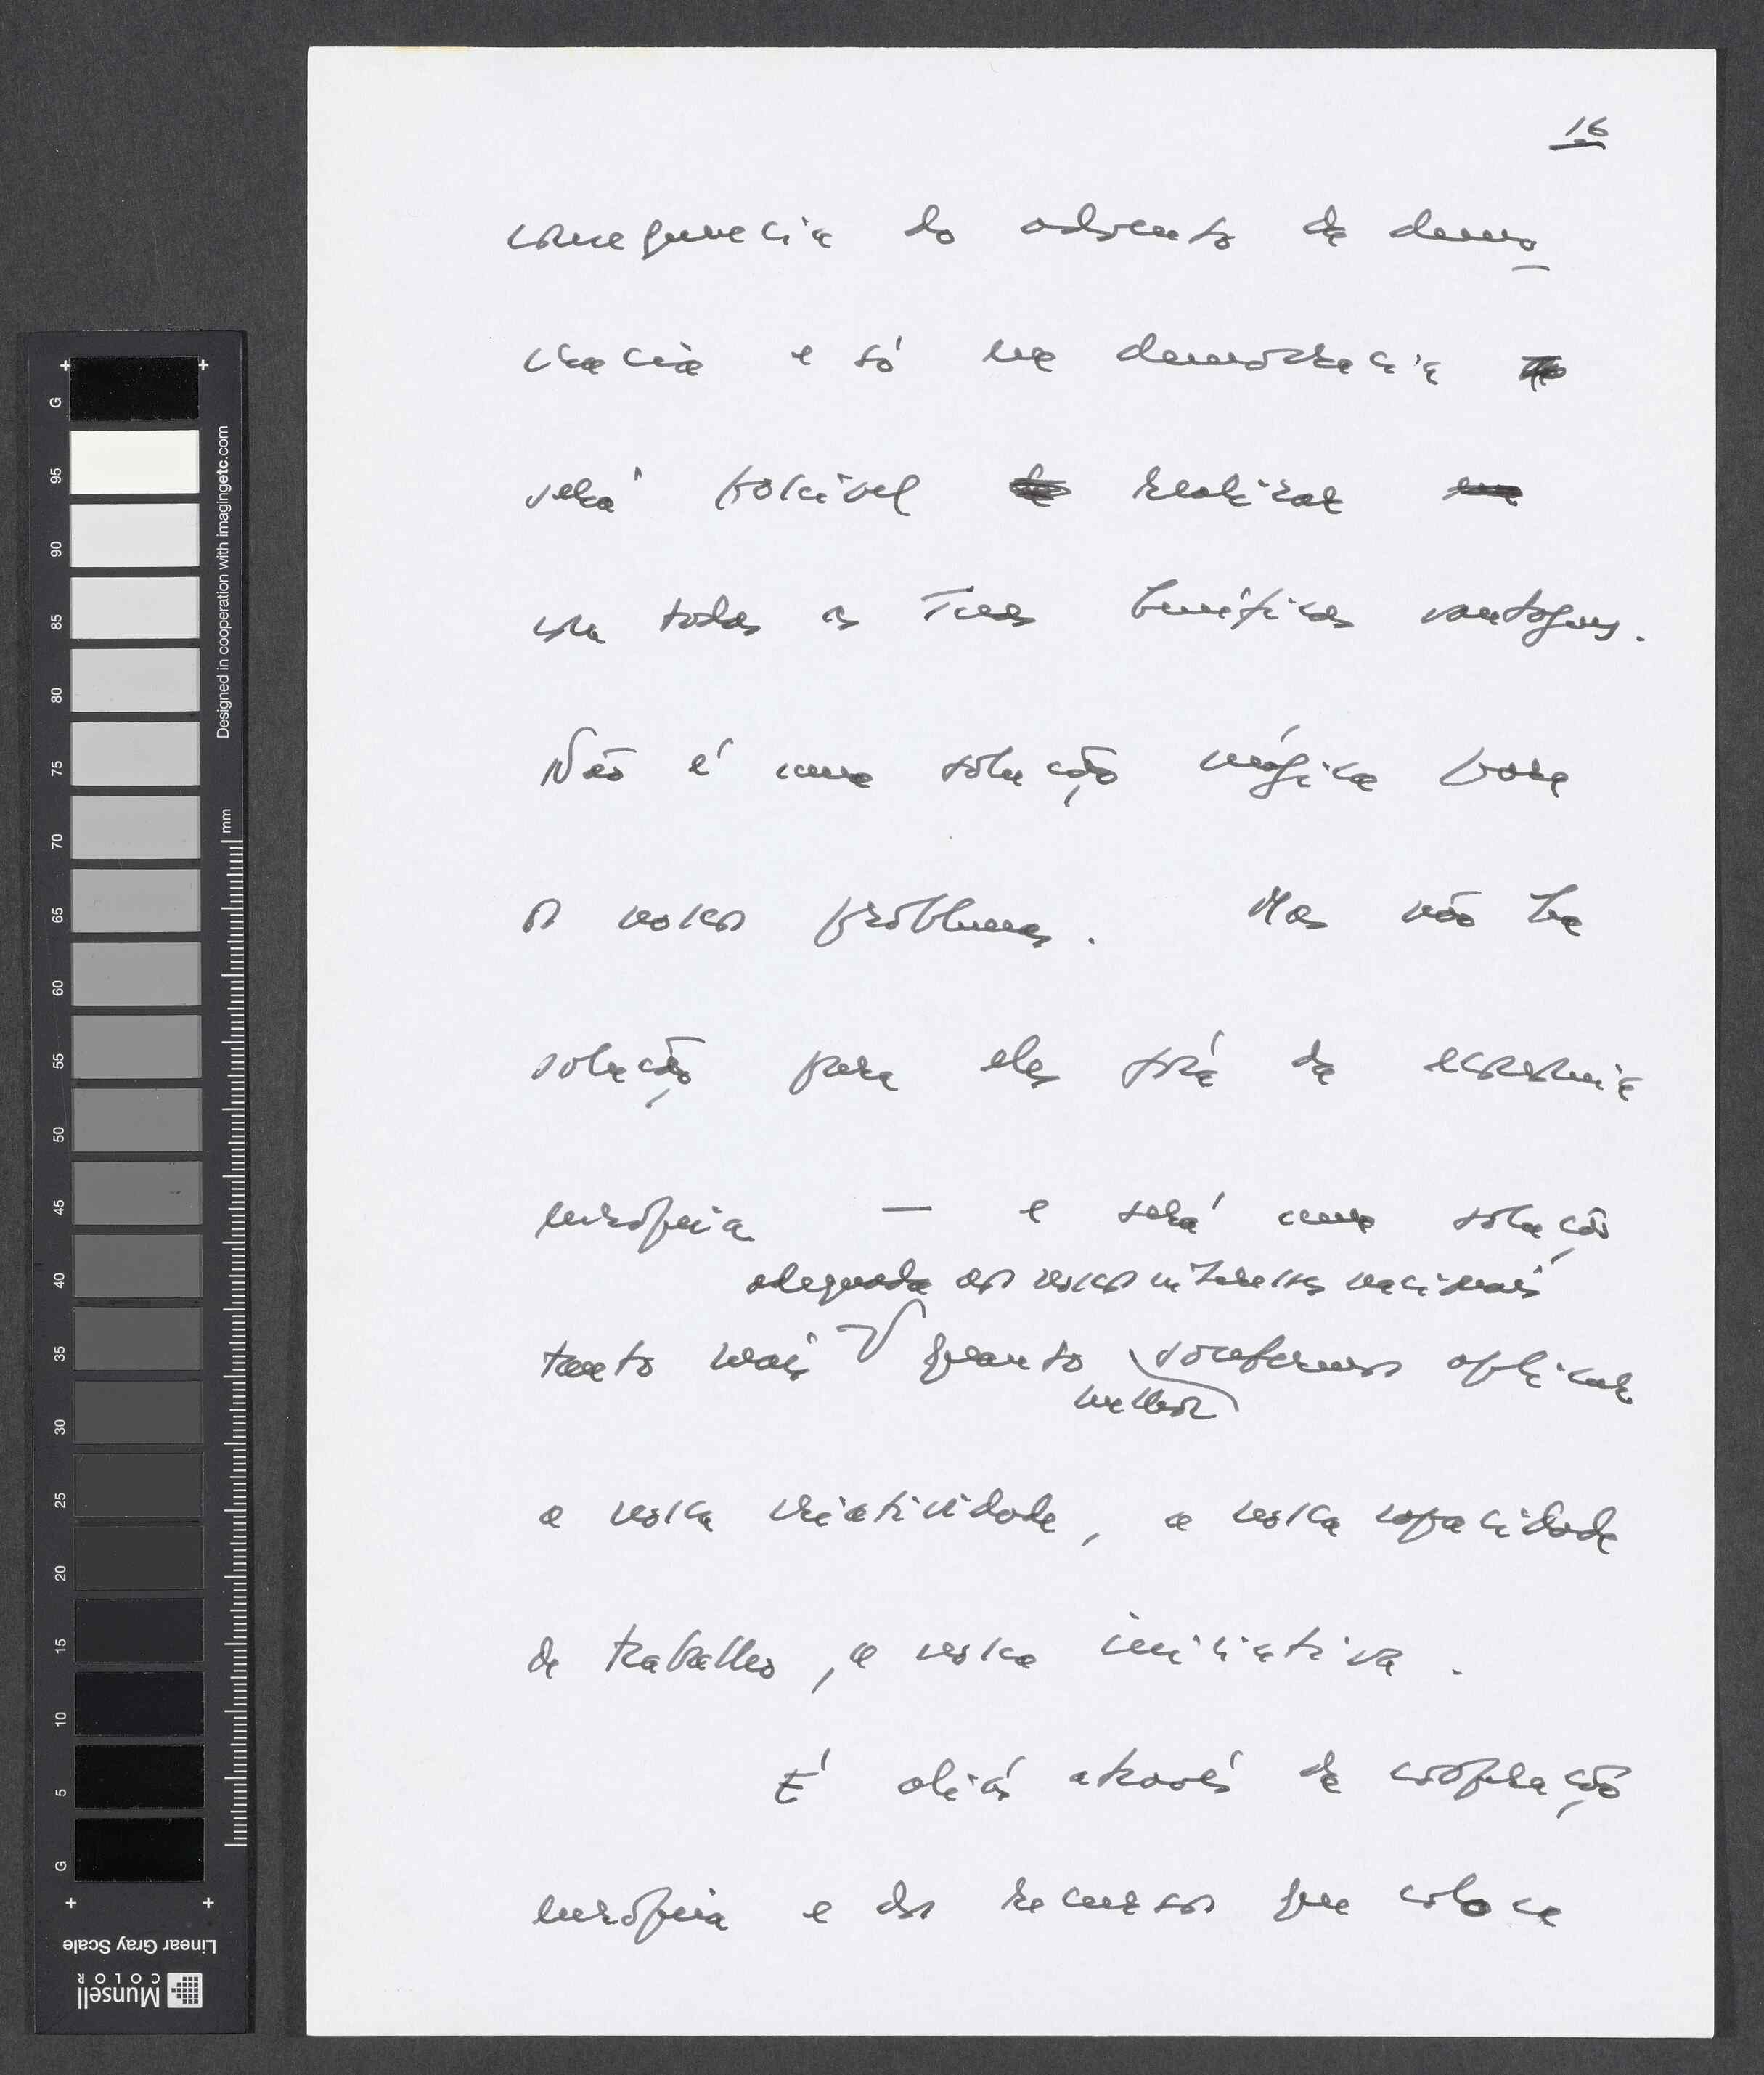 16
consequência do advento da demo
cracia e só na democracia
será possível realizar
com todas as suas benéficas vantagens.
Não é uma solução mágica para
os nossos problemas. Mas não há
solução para eles fora da economia
europeia — e será uma solução
adequada aos nossos interesses nacionais
tanto mais quanto soubermos aplicar
melhor
a nossa criatividade, a nossa capacidade
de trabalho, a nossa iniciativa.
É aliás através da cooperação
europeia e dos recursos que coloca
G
95
90
85
80
75
70
65
60
55
50
45
40
35
30
25
20
15
10
5
G
mm
Designed in cooperation with imagingetc.com
Linear Gray Scale
Munsell
COLOR